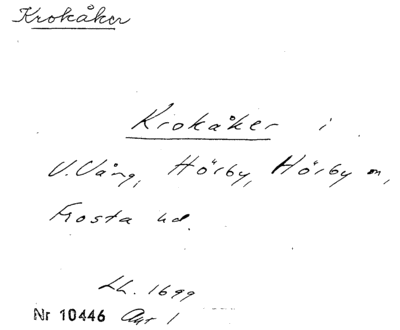 Krokåker
Krokåker i
V. Vång, Hörby, Hörby sn,
Frosta hd.
Lh. 1699
Nr 10446 Akt 1